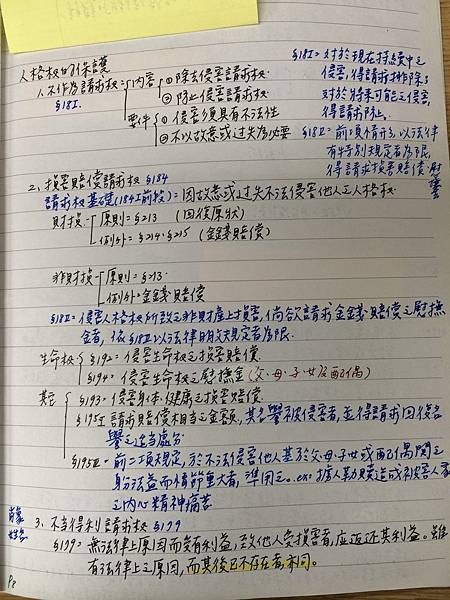 人格權的保護
1. 不作為請求權 = 內容 ① 除去侵害請求權
§18I. ② 防止侵害請求權
要件 ① 侵害須具有不法性
② 不以故意或過失為必要
§18I = 對於現在持續中之
侵害, 得請求排除;
對於將來可能之侵害,
得請求防止.
§18II = 前項情形, 以法律
有特別規定者為限,
得請求損害賠償.慰
2. 損害賠償請求權 §184
請求權基礎(184I前段) = 因故意或过失不法侵害他人之人格权.
財損 原則 = §213 (回復原狀)
例外 = §214、§215 (金錢賠償)
非財損 原則 = §213.
例外 = 金錢賠償
§18II = 侵害人格權所致之非財產上損害, 倘欲請求金錢賠償之慰撫
金者, 依§18II以法律明文規定者為限.
生命權 §192 = 侵害生命权之損害賠償.
§194 = 侵害生命权之慰撫金(父.母.子.女及配偶)
其它 §193 = 侵害身体.健康之損害賠償.
§195I 請求賠償相當之金額, 其名譽被侵害者, 並得請求回復名
譽之適當處分
§195III - 前二項規定, 於不法侵害他人基於父母子女或配偶關係之
身分法益而情節重大者, 準用之. ex: 擄人勒贖造成被害人家
之內心精神痛苦
3. 不當得利請求權 §179
§179 = 無法律上原因而受有利益, 致他人受損害者, 应返还其利益。雖
有法律上之原因, 而其後已不存在者, 亦同.
P8